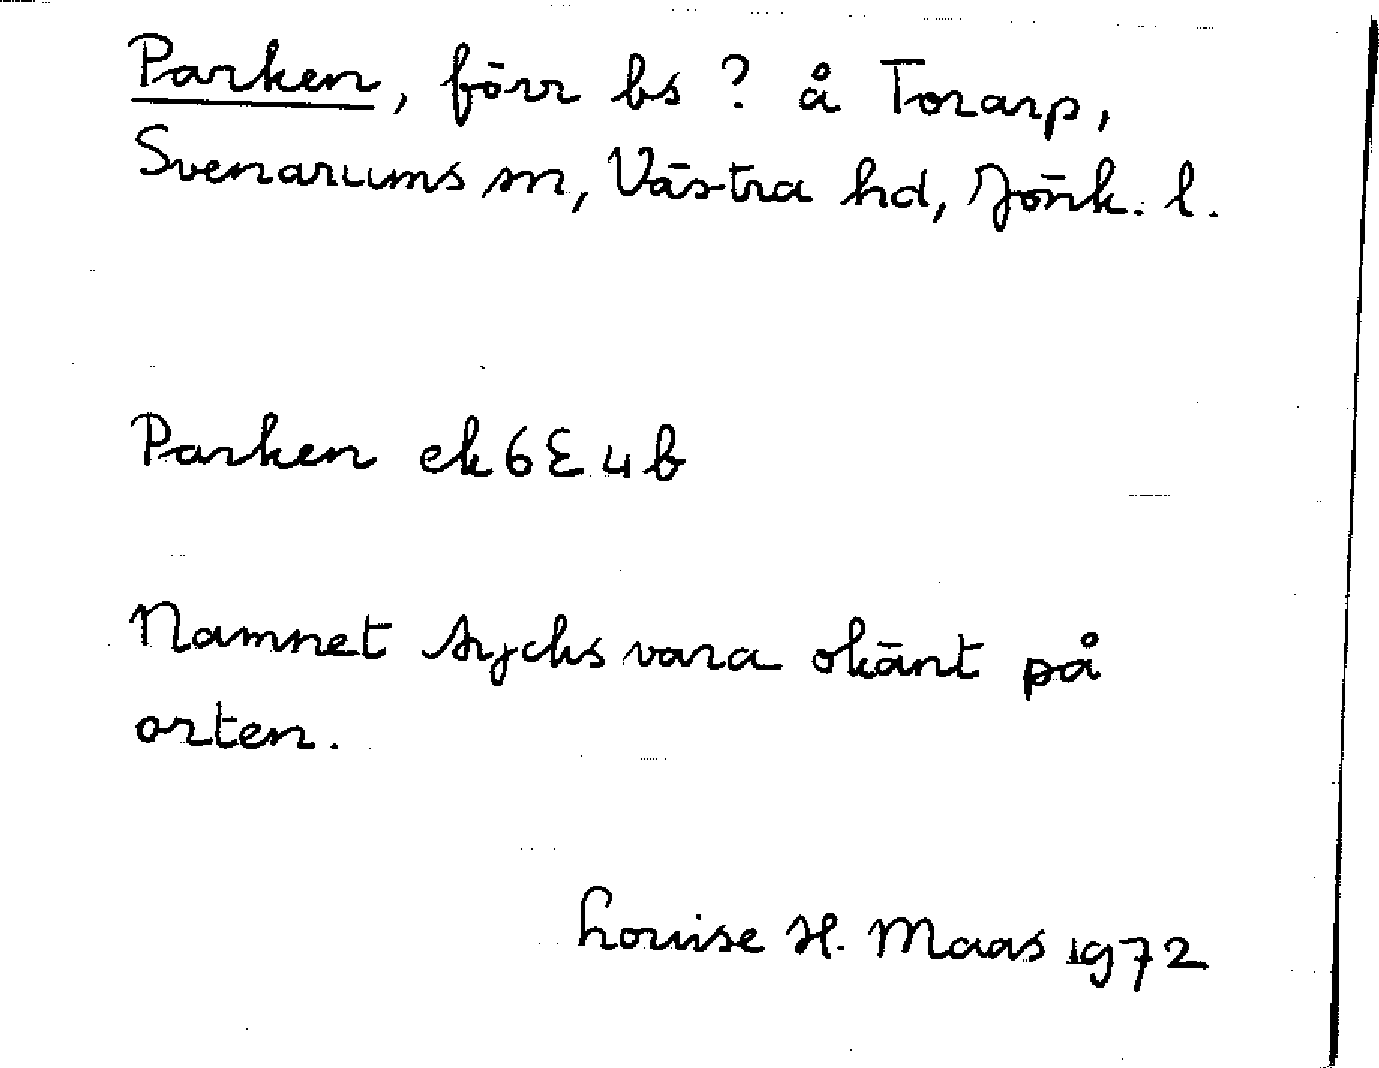 Parken, förr bs ? å Torarp,
Svenarums sn, Västra hd, Jönk. l.
Parken ek 6E 4b
Namnet tycks vara okänt på
orten.
Louise H. Maas 1972